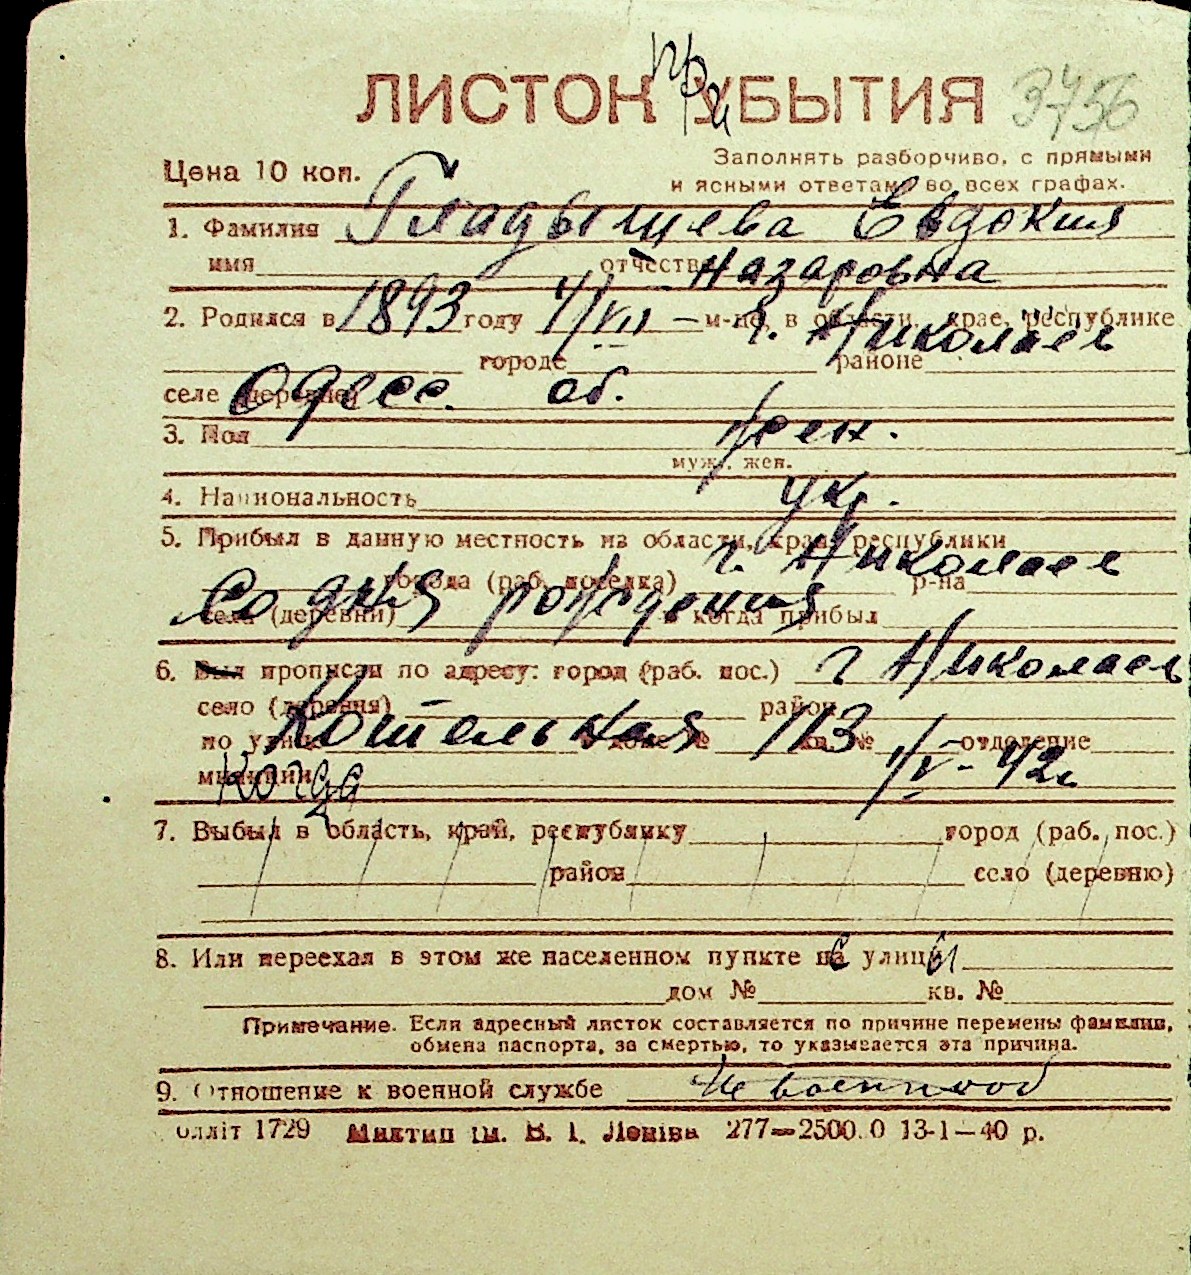 ЛИСТОК при УБЫТИЯ 3756
Цена 10 коп. Заполнять разборчиво, с прямыми
и ясными ответами во всех графах.
1. Фамилия Гладышева Евдокия
имя отчество Назаровна
2. Родился в 1893 году 4/VII — м-це, в области, крае, республике
г. Николаев
городе районе
селе (деревне) Одесс. об.
3. Пол жен.
муж., жен.
4. Национальность укр.
5. Прибыл в данную местность из области, края, республики
г. Николаев
города (раб. поселка) р-на
со дня рождения
села (деревни) и когда прибыл
6. Был прописан по адресу: город (раб. пос.) г Николаев
село (деревня) район
по улице Котельная доме № 113 кв. № отделение
милиции Когда 1/V - 42 г
7. Выбыл в область, край, республику город (раб. пос.)
район село (деревню)
8. Или переехал в этом же населенном пункте на с улицы
дом № кв. №
Примечание. Если адресный листок составляется по причине перемены фамилии,
обмена паспорта, за смертью, то указывается эта причина.
9. Отношение к военной службе
олліт 1729 Миктип ім. В. І. Леніна 277—2500.0 13-1—40 р.